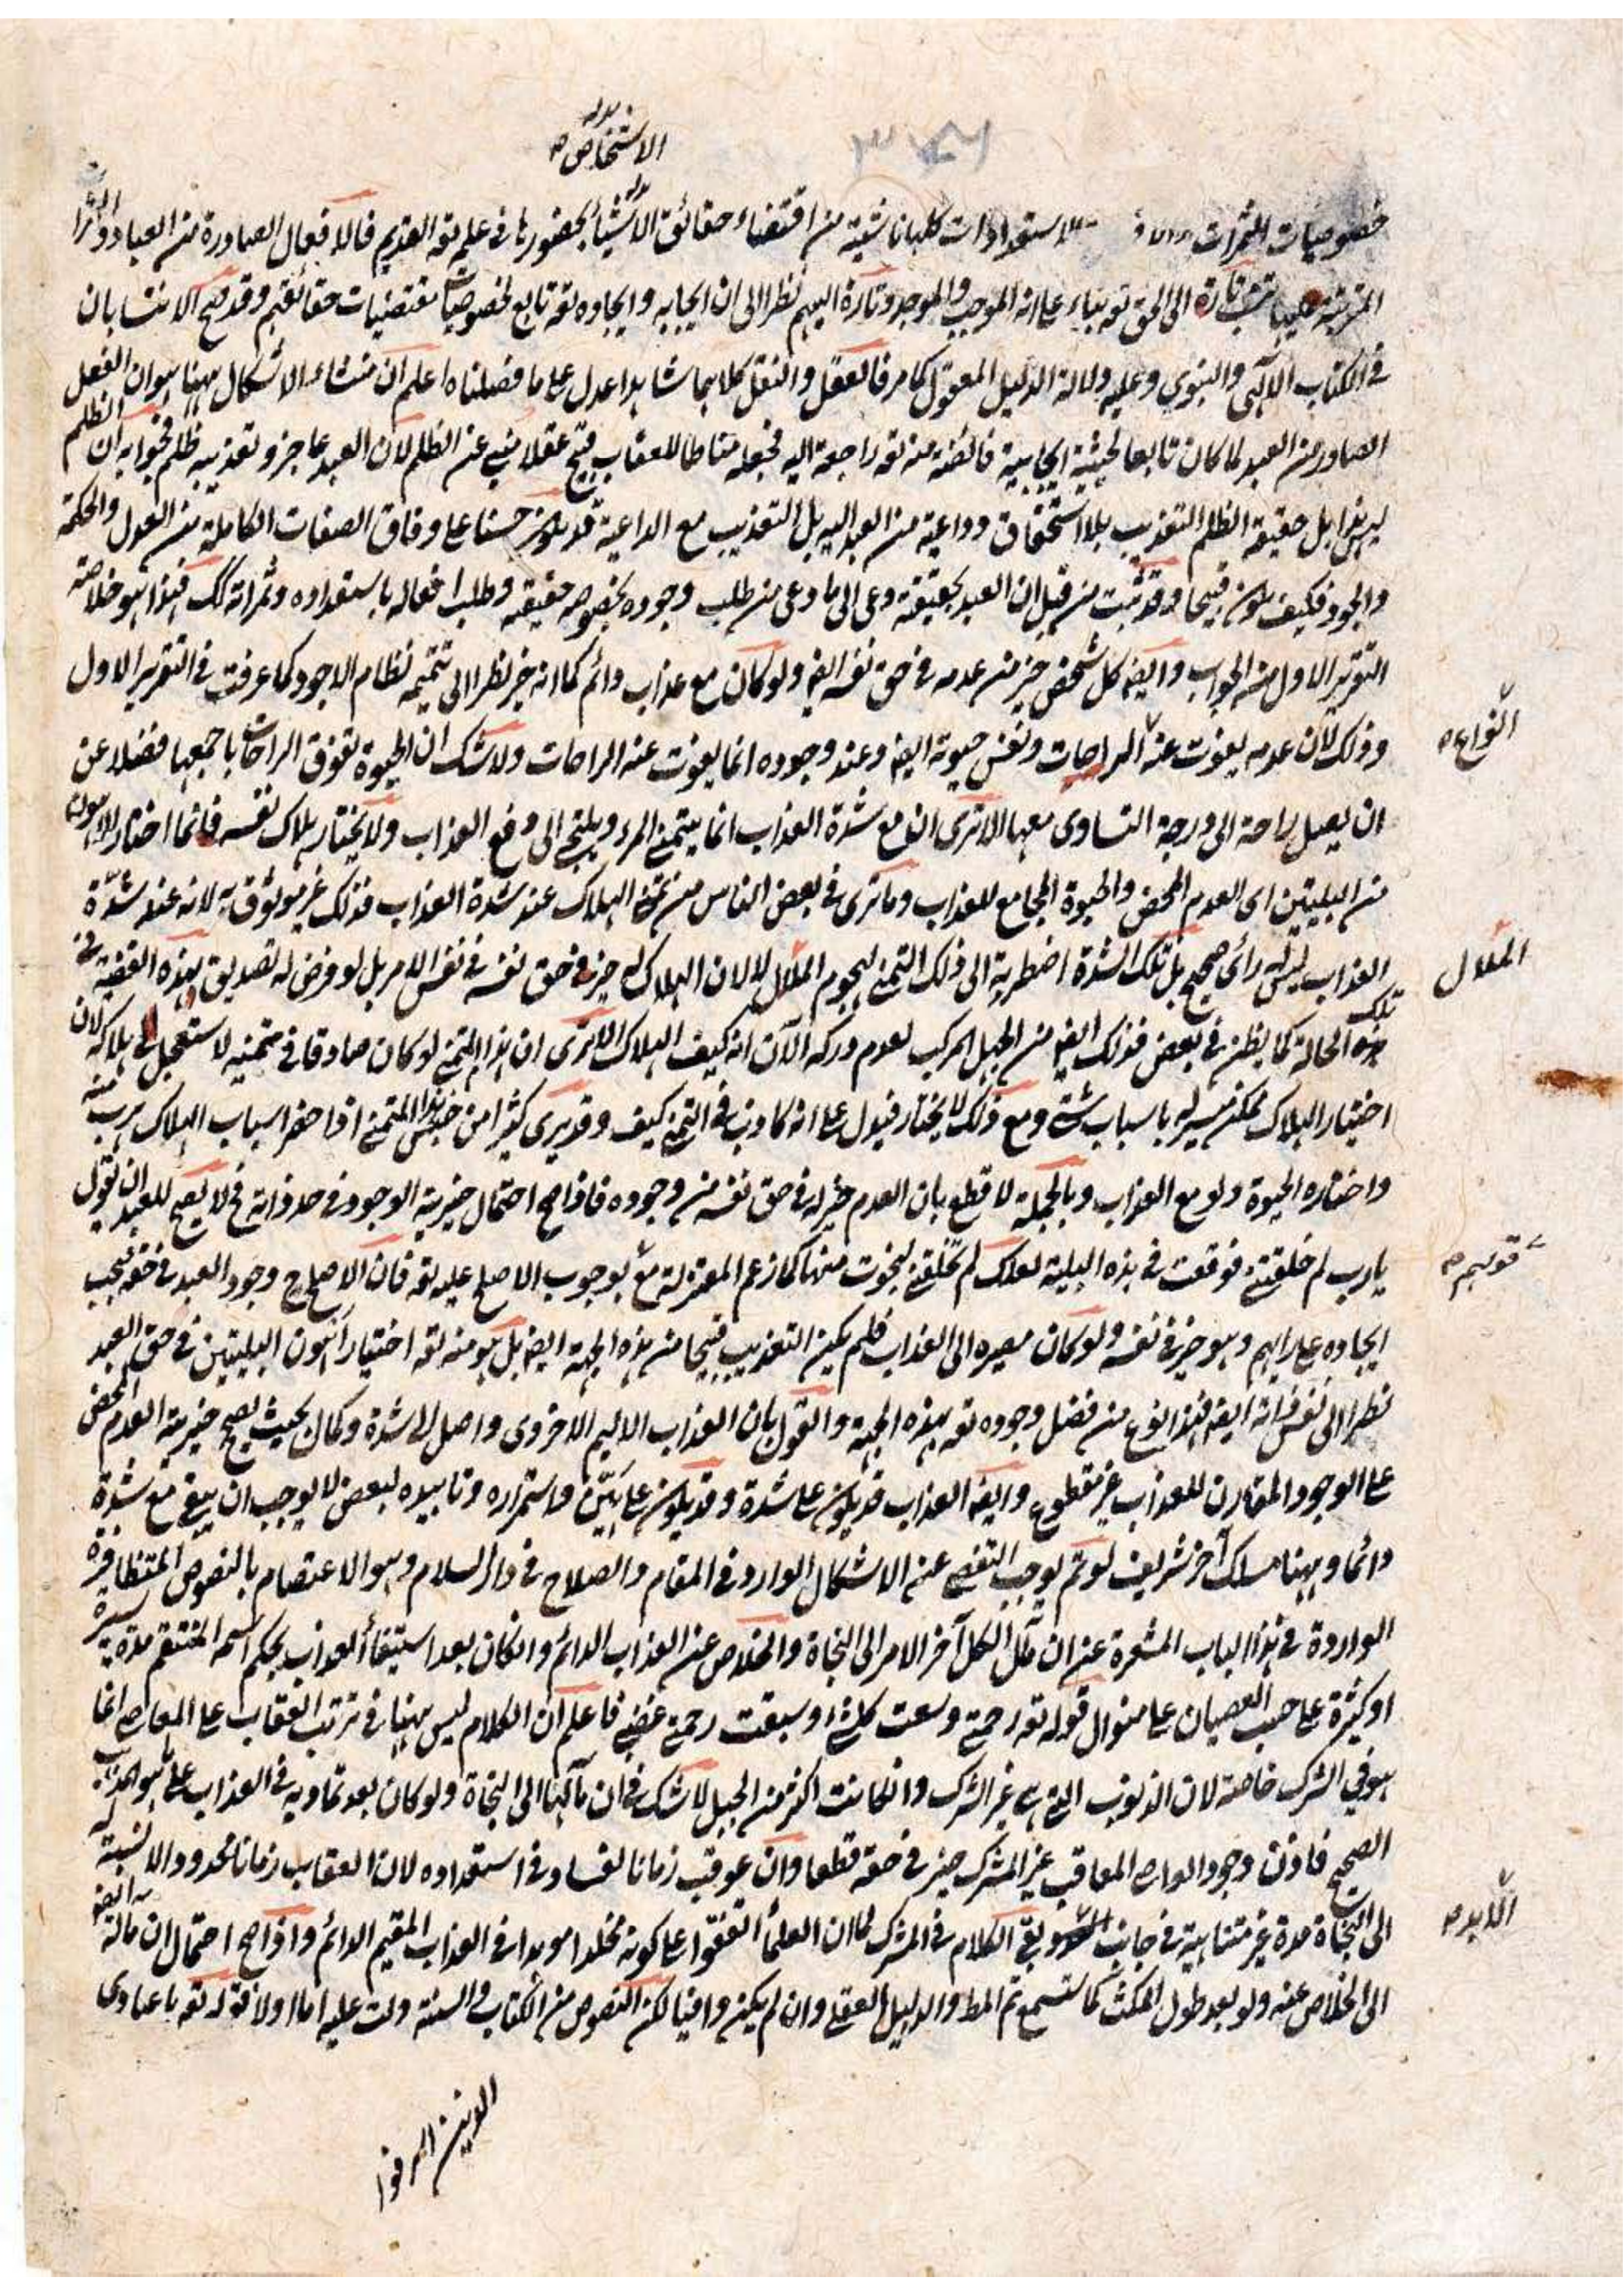 الاشخاص
خصوصيات الثمرات الاستعدادات كلها ناشئة من اقتضاء حقائق الاشياء بحضورها في علمه تعه القديم فالافعال الصادرة من العباد
المترتبة تارة الى الحق تعه بناء على انه الموجب والموجد وتارة اليهم نظرا الى ان ايجابه وايجاده تعه تابع لخصوصيات مقتضيات حقائقهم وقد صح الانتسابان
في الكتاب الالهى والنبوي وعليه دلالة الدليل المعقول كما مر فالعقل والنقل كلاهما شاهدا عدل على ما فصلناه اعلم ان منشاء الاشكال ههنا هو ان الفعل
الصادر من العبد لما كان تابعا لحيثية ايجابية فائضة منه تعه راجعة اليه فجعله مناطا للعقاب قبيح عقلا منبئ عن الظلم لان العبد عاجز وتعذيبه ظلم فجوابه ان الظلم
ليس هذا بل حقيقة الظلم التعذيب بلا استحقاق وداعية من العبد اليه بل التعذيب مع الداعية قد يكون حسنا على وفاق الصفات الكاملة من العدل والحكمة
والجود فكيف يكون قبيحا وقد ثبت من قبل ان العبد بحقيقته دعى الى ما دعى من طلب وجوده بخصوصه حقيقته وطلب افعاله باستعداده وثمراته كك فهذا هو خلاصة
التقرير الاول من الجواب وايضه كل شخص خير من عدمه في حق نفسه ايضه ولو كان مع عذاب دائم كما انه خير نظرا الى تتميمه نظام الوجود كما عرفت في التقرير الاول
وذلك لان عدمه يفوت عنه الراحات ونفس حيوته ايضه وعند وجوده انما يفوت عنه الراحات ولا شك ان الحيوة تفوق الراحات باجمعها فضلا عن
انواع
ان يصل راحة الى درجة التساوى معها الا ترى ان مع شدة العذاب انما يتمنى المرء ويلتجئ الى دفع العذاب ولا يختار هلاك نفسه فانما اختار الاهون
من البليتين اى العدم المحض والحيوة المجامع للعذاب وما ترى في بعض الناس من تمنى الهلاك عند شدة العذاب فذلك غير موثوق به لانه عند شدة
العذاب ليس له رأى صحيح بل تلك الشدة اضطرته الى ذلك التمنى لهجوم الملال لا لان الهلاك له خير في حق نفسه في نفس الامر بل لو فرض له تصديق بهذه القضية في
الملال
تلك الحالة كما يظن في بعض فذلك ايضه من الجهل المركب لعدم دركه الآن انه كيف الهلاك الا ترى ان هذا المتمنى لو كان صادقا في متمنيه لاستعجل في هلاكه لان
اختيار الهلاك ممكن ميسر له باسباب شتى ومع ذلك لا يختار فيدل على انه كاذب في التمنى كيف وقد يرى كثيرا من جنس هذا المتمنى اذا حضر اسباب الهلاك هرب منه
واختاره الحيوة ولو مع العذاب وبالجملة لا قطع بان العدم خير له في حق نفسه من وجوده فاذا صح احتمال خيرية الوجود في حد ذاته فح لا يصح للعبد ان يقول
يا رب لم خلقتنى فوقعت في هذه البلية لعلك لم تخلقنى لنجوت منها كما زعم المعتزلة مع بوجوب الاصلح عليه تعه فان الاصلح ح وجود العبد في حقه فيجب
قولهم
ايجاده على رايهم وهو خير في نفسه ولو كان مصيره الى العذاب فلم يكن التعذيب قبيحا من هذه الجهة ايضه بل هو منه تعه اختيار اهون البليتين في حق العبد
نظرا الى نفس ذاته ايضه فهذا نوع من فضل وجوده تعه بهذه الجهة والقول بان العذاب الاليم الاخروى واصل الى شدة وكمال بحيث يصح خيرية العدم المحض
على الوجود المقارن للعذاب غير مقطوع وايضه العذاب قد يكون على شدة وقد يكون على هين واستمراره وتابيده لبعض لا يوجب ان يبقى مع شدة
دائما وههنا مسلك آخر شريف لو تم يوجب التفصى عن الاشكال الوارد في المقام والصلاح في دار السلام وهو الاعتصام بالنصوص المتظافرة
الواردة في هذا الباب المشعرة عن ان مآل الكل آخر الامر الى النجاة والخلاص عن العذاب الدائم وان كان بعد استيفاء العذاب بحكم اسمه المنتقم مدة يسيرة
او كثيرة على حسب العصيان على منوال قوله تعه رحمتى وسعت كل شئ وسبقت رحمتى غضبى فاعلم ان الكلام ليس ههنا في ترتب العقاب على المعاصى انما
هو في الشرك خاصة لان الذنوب التى هى غير الشرك وان كانت اكثر من الجبل لا شك في ان مآلها الى النجاة ولو كان بعد تماديه في العذاب على ما هو المذهب
الصحيح فاذن وجود العاصى المعاقب غير المشرك خير في حقه قطعا وان عوقب زمانا لفساد في استعداده لان العقاب زمانا محدودا لا نسبة له
الى النجاة مدة غير متناهية في جانب بقى الكلام في المشرك لما ان العلماء اتفقوا على كونه مخلدا موبدا في العذاب المقيم الدائم واذا صح احتمال ان مآله ايضه
الابد
الى الخلاص عنه ولو بعد طول المكث كما ستسمع تم المط والدليل العقلى وان لم يكن وافيا لكن النصوص من الكتاب والسنة دلت عليه اما اولا فقوله تعه يا عبادى
الذين اسرفوا